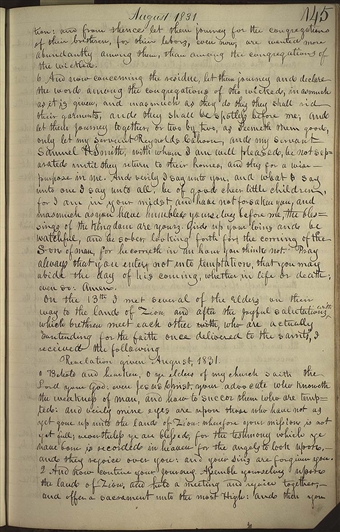 August 1831
145
tion: and from thence let them journey for the congregations
of their brethren, for their labors, even now, are wanted more
abundantly among them, than among the congregations of
the wicked.
6 And now concerning the residue, let them journey and declare
the word among the congregations of the wicked, inasmuch
as it is given, and inasmuch as they do this they shall rid
their garments, and they shall be spotless before me, and
let them journey together, or two by two, as seemeth them good,
only let my servant Reynolds Cahoon, and my servant
Samuel H. Smith, with whom I am well pleased, be not sep-
erated until they return to their homes, and this for a wise
purpose in me. And verily I say unto you, and what I say
unto one I say unto all, be of good cheer little children,
for I am in your midst and have not forsaken you, and
inasmuch as you have humbled yourselves before me, the bles-
sings of the Kingdom are yours. Gird up your loins and be
watchful, and be sober, looking forth for the coming of the
Son of man, for he cometh in an hour you think not. Pray
always that you enter not into temptation, that you may
abide the day of his coming, whether in life or death;
even so: Amen.
On the 13th I met several of the Elders on their
way to the land of Zion and after the joyful salutations, with
which brethren meet each other, who are actually
contending for the faith once delivered to the saints, I
received the following
Revelation given August, 1831.
Behold and hearken, O ye elders of my church saith the
Lord your God: even Jesus Christ, your advocate who knoweth
the weakness of man, and how to succor them who are temp-
ted: and verily mine eyes are upon those who have not as
yet gone up unto the land of Zion: wherefore your mission is not
yet full; nevertheless ye are blessed, for the testimony which ye
have borne is recorded in heaven for the angels to look upon,
and they rejoice over you: and your sins are forgiven you
2 And now continue your journey. Assemble yourselves upon
the land of Zion, and hold a meeting and rejoice together,
and offer a sacrament unto the most High: and then you